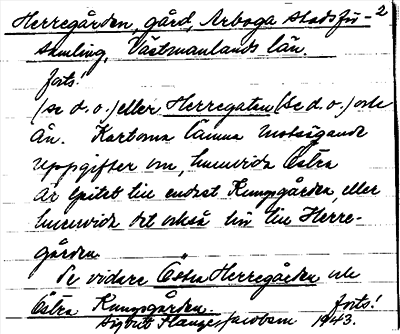 Herregården, gård, Arboga stadsför- 2
samling, Västmanlands län.
forts.
(se d.o.) eller Herregatan (se d.o.) och
ån. Kartorna lämna motsägande
uppgifter om, huruvida Östra
är epitet till endast Kungsgården, eller
huruvida det också hör till Herre-
gården.
Se vidare Östra Herregården och
Östra Kungsgården. forts!
Jacobson 1943.